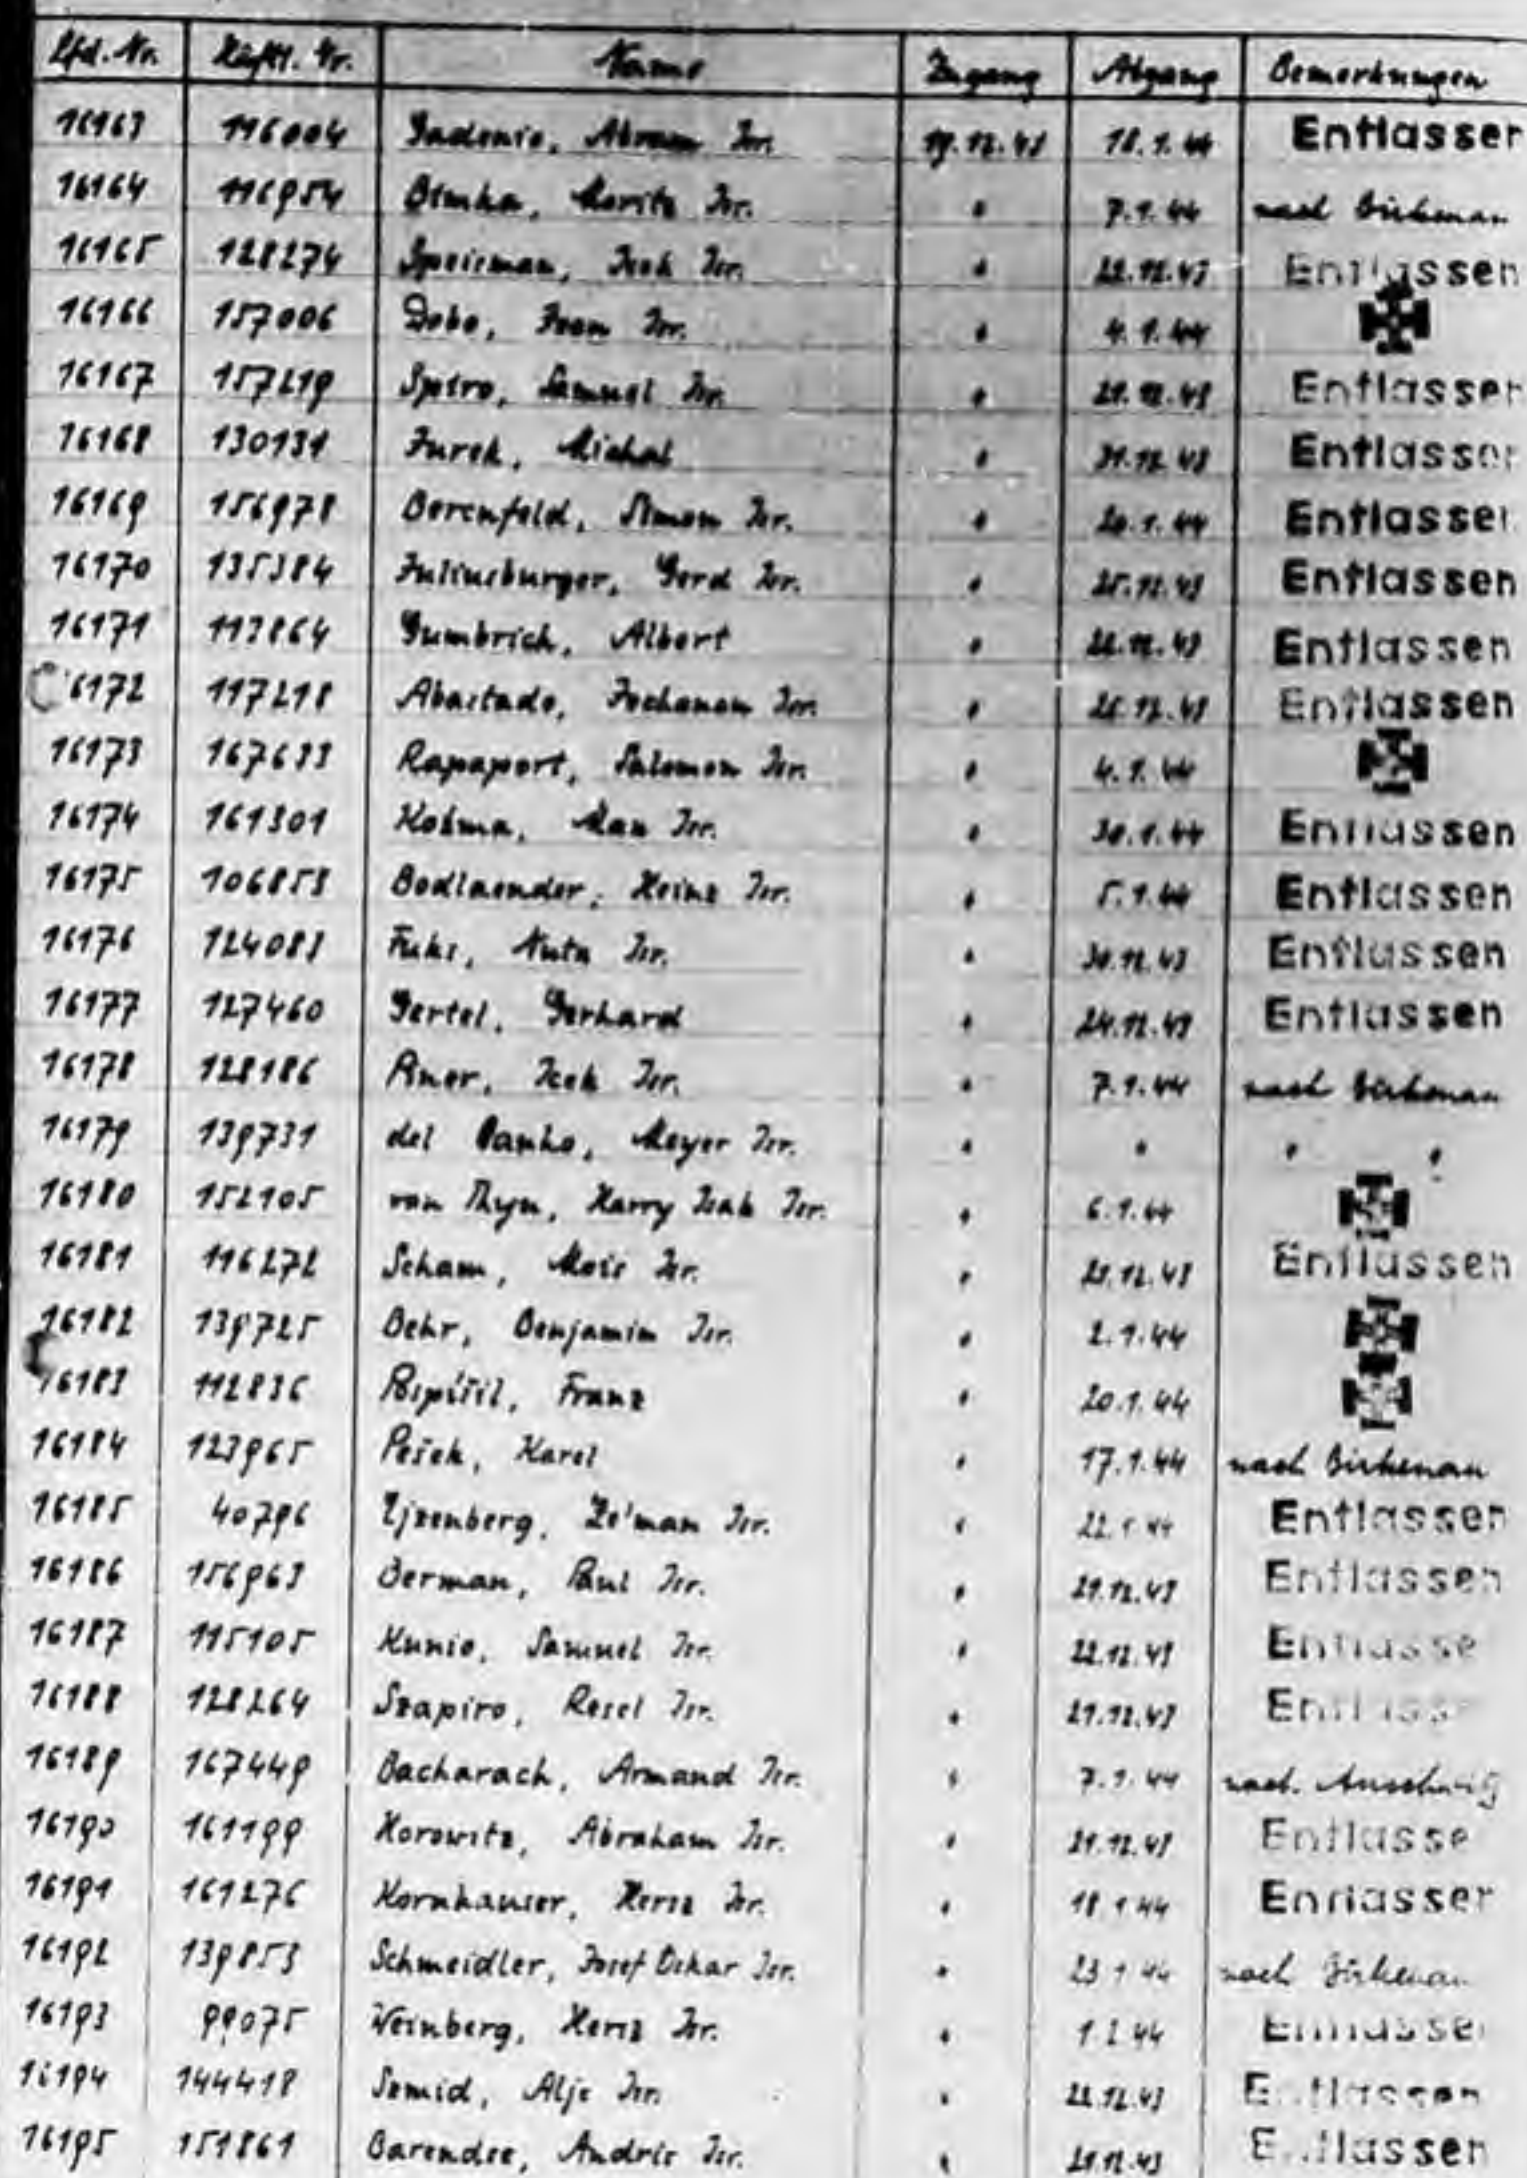 Lfd. Nr. Häftl. Nr. Name Zugang Abgang Bemerkungen
16163 116004 Abram Isr. 19.12.43 18.1.44 Entlassen
16164 116954 Moritz Isr. " 7.1.44 nach Birkenau
16165 128274 Speisman, Icek Isr. " 22.12.43 Entlassen
16166 157006 Dobo, Ivan Isr. " 4.1.44
16167 157219 Spiro, Samuel Isr. " 21.12.43 Entlassen
16168 130131 Jurek, Michal " 31.12.43 Entlassen
16169 156978 Berenfeld, Simon Isr. " 20.1.44 Entlassen
16170 135384 Juliusburger, Gerd Isr. " 25.12.43 Entlassen
16171 113864 Gumbrich, Albert " 22.12.43 Entlassen
16172 117218 Abastado, Isr. " 12.43 Entlassen
16173 167633 Rapaport, Salomon Isr. " 4.1.44
16174 161301 Max Isr. " 30.1.44 Entlassen
16175 106853 Bodlaender, Heinz Isr. " 5.1.44 Entlassen
16176 124083 Fuks, Nuta Isr. " 30.12.43 Entlassen
16177 127460 Gertel, Gerhard " 24.12.43 Entlassen
16178 128186 Icek Isr. " 7.1.44 nach Birkenau
16179 139731 del Meyer Isr. " " " "
16180 152105 van Thyn, Harry Isak Isr. " 6.1.44
16181 116272 Scham, Mois Isr. " 12.43 Entlassen
16182 139725 Behr, Benjamin Isr. " 2.1.44
16183 112836 Pospíšil, Franz " 20.1.44
16184 123965 Pešek, Karel " 17.1.44 nach Birkenau
16185 40796 Isr. " 22.1.44 Entlassen
16186 156963 Berman, Paul Isr. " 21.12.43 Entlassen
16187 115105 Kunio, Samuel Isr. " 22.12.43 Entlasse
16188 128264 Szapiro, Resel Isr. " 21.12.43 Entlasse
16189 167449 Bacharach, Armand Isr. " 7.1.44 nach Auschwitz
16190 161199 Horowitz, Abraham Isr. " 21.12.43 Entlasse
16191 161276 Kornhauser, Hersz Isr. " 18.1.44 Entlassen
16192 139853 Schmeidler, Josef Oskar Isr. " 23.1.44 nach Birkenau
16193 99075 Weinberg, Hersz Isr. " 1.2.44 Entlassen
16194 144418 Szmid, Alje Isr. " 22.12.43 Entlassen
16195 151861 Barendse, Andries Isr. " 21.12.43 Entlassen